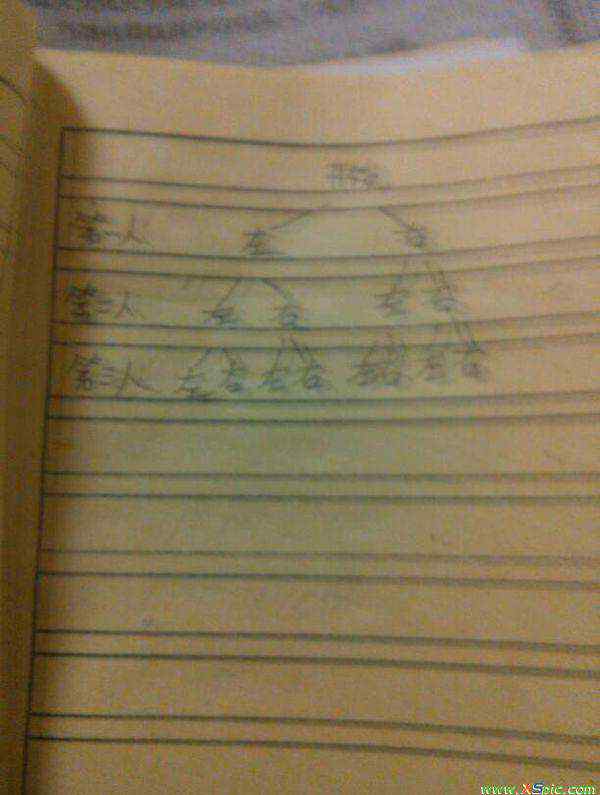 开始
第一人 左 右
第二人 左 右 左 右
第三人 左 右 左 右 左 右 左 右
www.XSpic.com